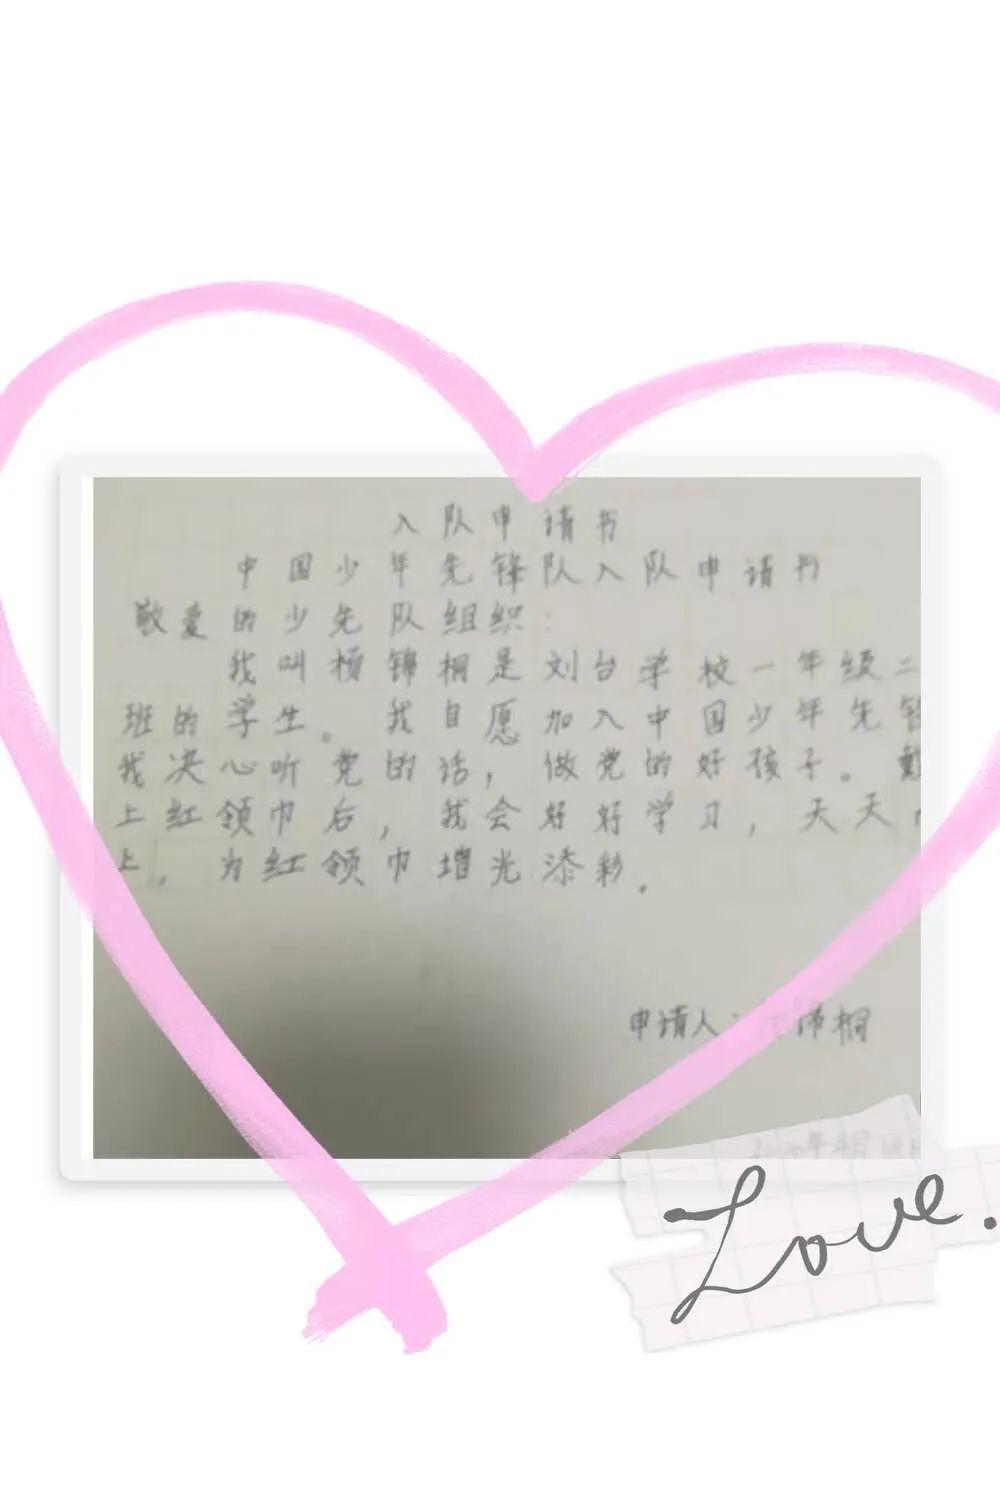 入队申请书
中国少年先锋队入队申请书
敬爱的少先队组织：
我叫杨锦桐是刘台学校一年级二
班的学生。我自愿加入中国少年先
我决心听党的话，做党的好孩子。
上红领巾后，我会好好学习，天天
上，为红领巾增光添彩。
申请人：锦桐
Love.